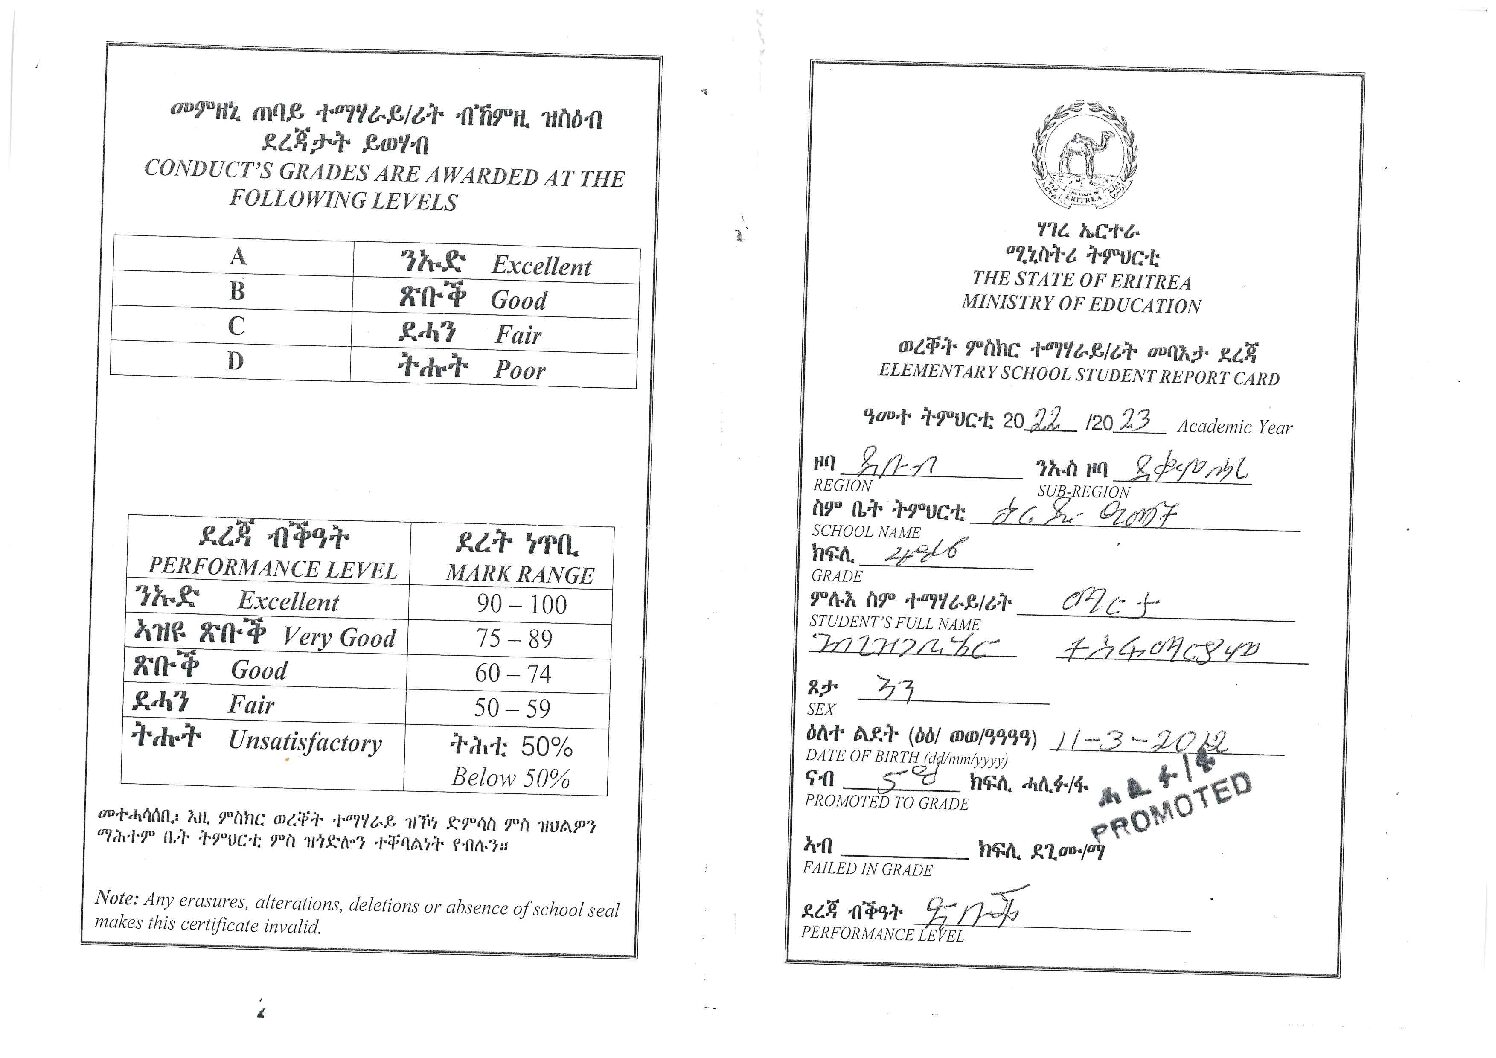 መምዘኒ ጠባይ ተማሃራይ/ሪት ብኸምዚ ዝስዕብ
ደረጃታት ይወሃብ
CONDUCT'S GRADES ARE AWARDED AT THE
FOLLOWING LEVELS
A ንኡድ Excellent
B ጽቡቕ Good
C ደሓን Fair
D ትሑት Poor
ደረጃ ብቕዓት ደረት ነጥቢ
PERFORMANCE LEVEL MARK RANGE
ንኡድ Excellent 90 – 100
ኣዝዩ ጽቡቕ Very Good 75 – 89
ጽቡቕ Good 60 – 74
ደሓን Fair 50 – 59
ትሑት Unsatisfactory ትሕቲ 50%
Below 50%
መተሓሳሰቢ፡ እዚ ምስክር ወረቐት ተማሃራይ ዝኾነ ድምሳስ ምስ ዝህልዎን
ማሕተም ቤት ትምህርቲ ምስ ዝጎድሎን ተቐባልነት የብሉን።
Note: Any erasures, alterations, deletions or absence of school seal
makes this certificate invalid.
ሃገረ ኤርትራ
ሚኒስትሪ ትምህርቲ
THE STATE OF ERITREA
MINISTRY OF EDUCATION
ወረቐት ምስክር ተማሃራይ/ሪት መባእታ ደረጃ
ELEMENTARY SCHOOL STUDENT REPORT CARD
ዓመተ ትምህርቲ 2022 /2023 Academic Year
ዞባ ደቡብ ንኡስ ዞባ ደቀምሓረ
REGION SUB-REGION
ስም ቤት ትምህርቲ
SCHOOL NAME
ክፍሊ 4ይ
GRADE
ምሉእ ስም ተማሃራይ/ሪት ማርታ
STUDENT'S FULL NAME
ገብረእግዚኣብሄር ተስፋማርያም
ጾታ ጓ
SEX
ዕለተ ልደት (ዕዕ/ ወወ/ዓዓዓዓ) 11-3-2012
DATE OF BIRTH (dd/mm/yyyy)
ናብ 5ይ ክፍሊ ሓሊፉ/ፋ ሓሊፉ/ፋ
PROMOTED TO GRADE PROMOTED
ኣብ ክፍሊ ደጊሙ/ማ
FAILED IN GRADE
ደረጃ ብቕዓት ጽቡቕ
PERFORMANCE LEVEL